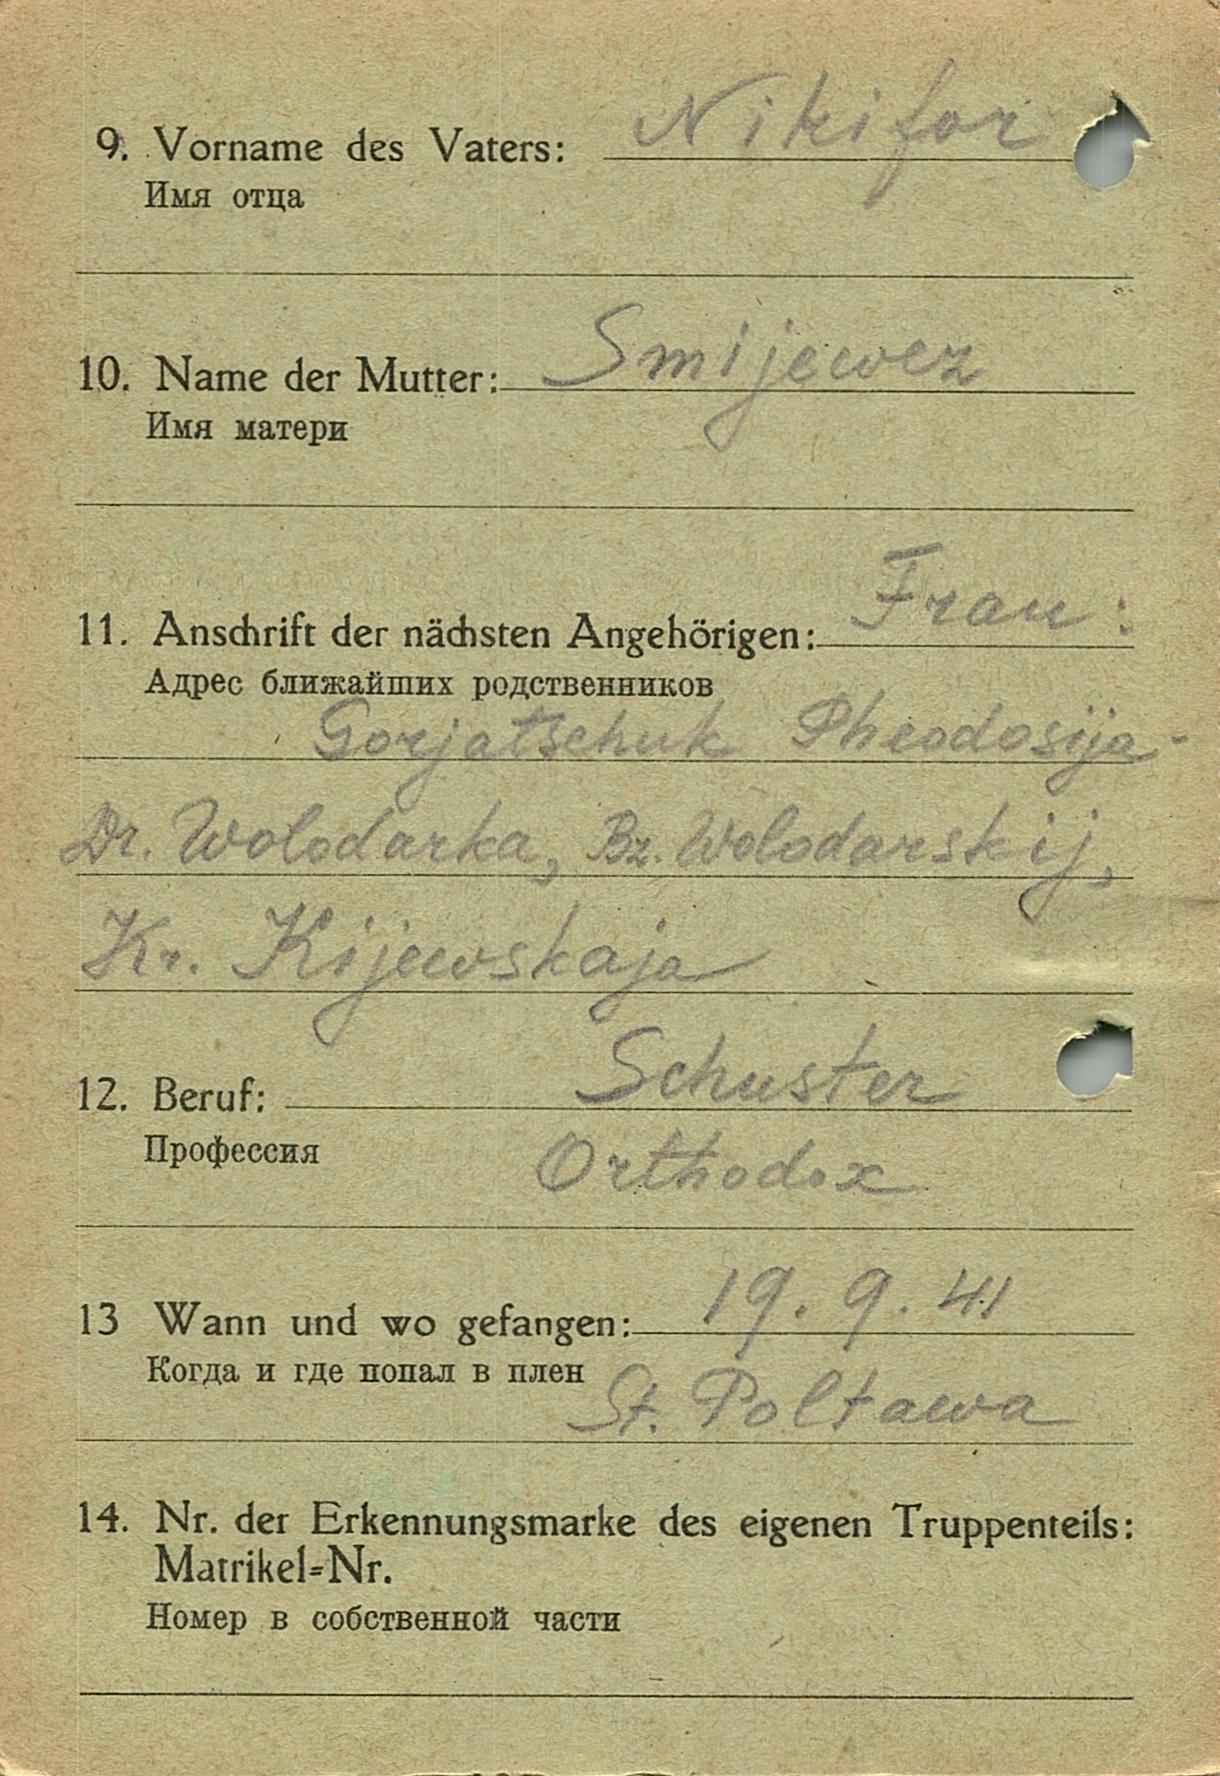 9. Vorname des Vaters: Nikifor
Имя отца
10. Name der Mutter: Smijewez
Имя матери
11. Anschrift der nächsten Angehörigen: Frau:
Адрес ближайших родственников
Gorjatschuk Pheodosija-
Dr. Wolodarka, Bz. Wolodarskij,
Kr. Kijewskaja
12. Beruf: Schuster
Профессия Orthodox
13 Wann und wo gefangen: 19.9.41
Когда и где попал в плен St. Poltawa
14. Nr. der Erkennungsmarke des eigenen Truppenteils:
Matrikel=Nr.
Номер в собственной части